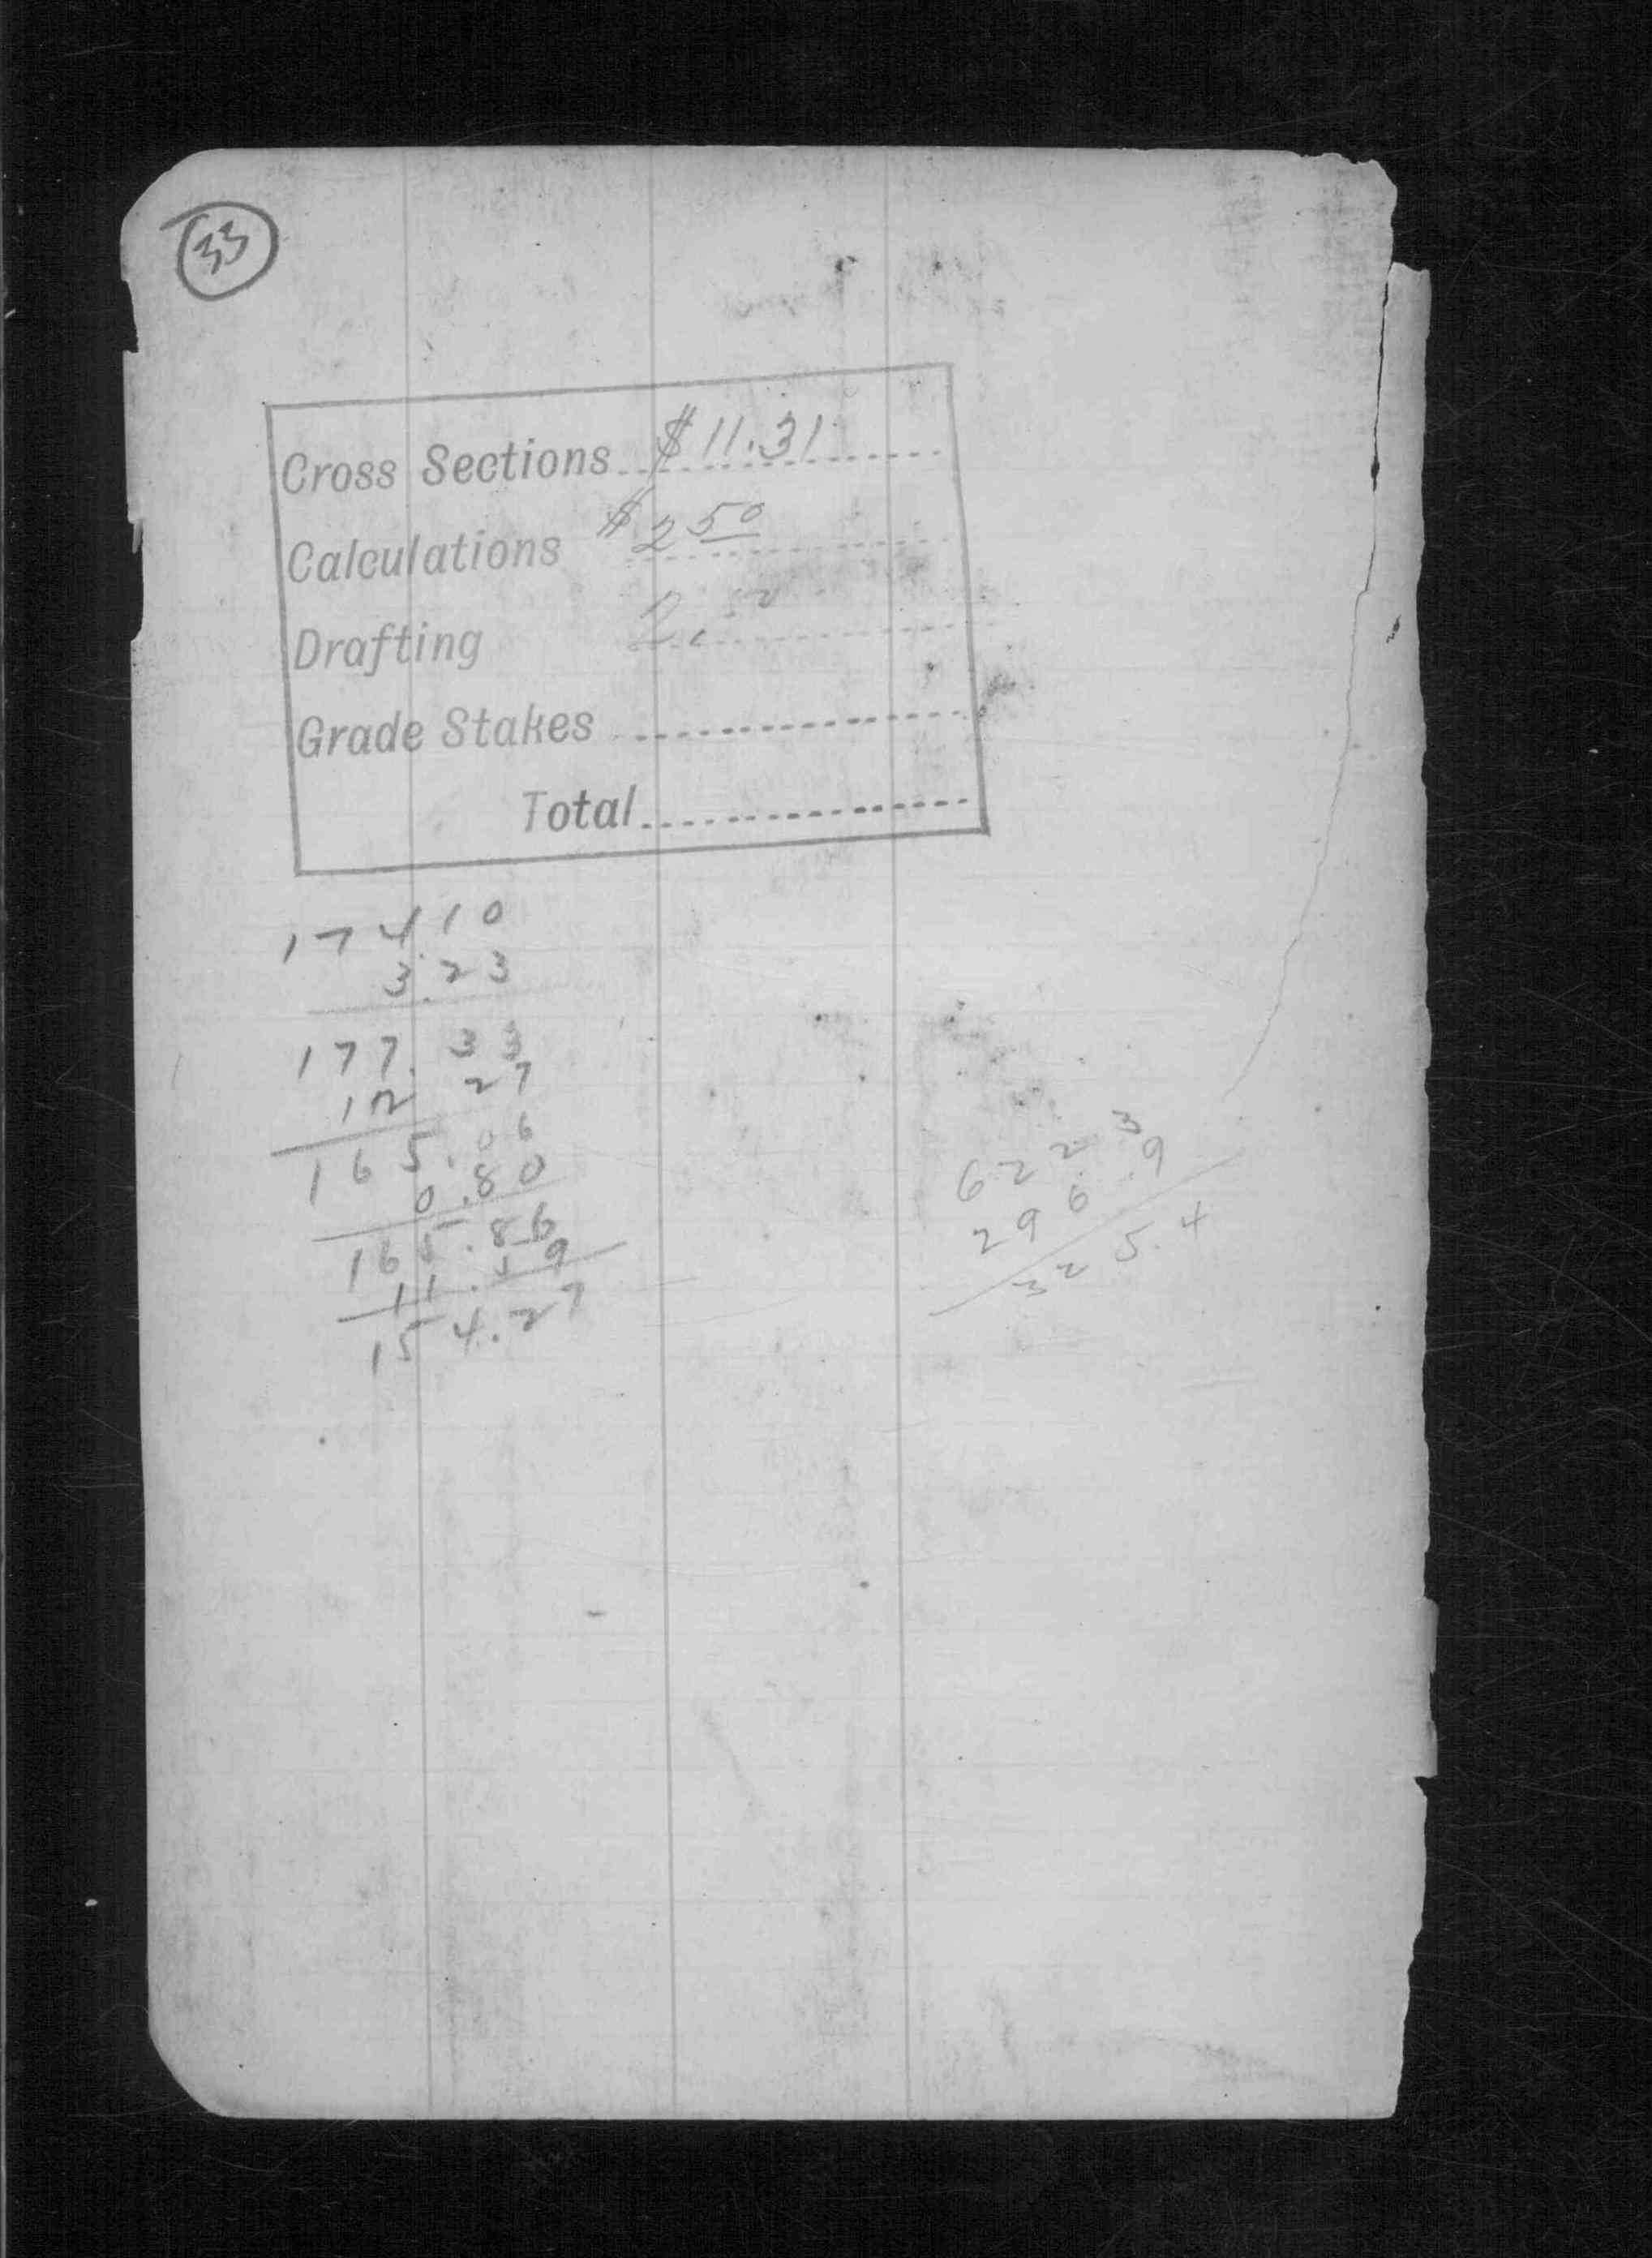 33
Cross Sections $11.31
Calculations $2 50
Drafting
Grade Stakes
Total
174 10
3.23
177.33
12 27
165.06
0.80
165.86
11.59
154.27
622 3
296.9
325.4